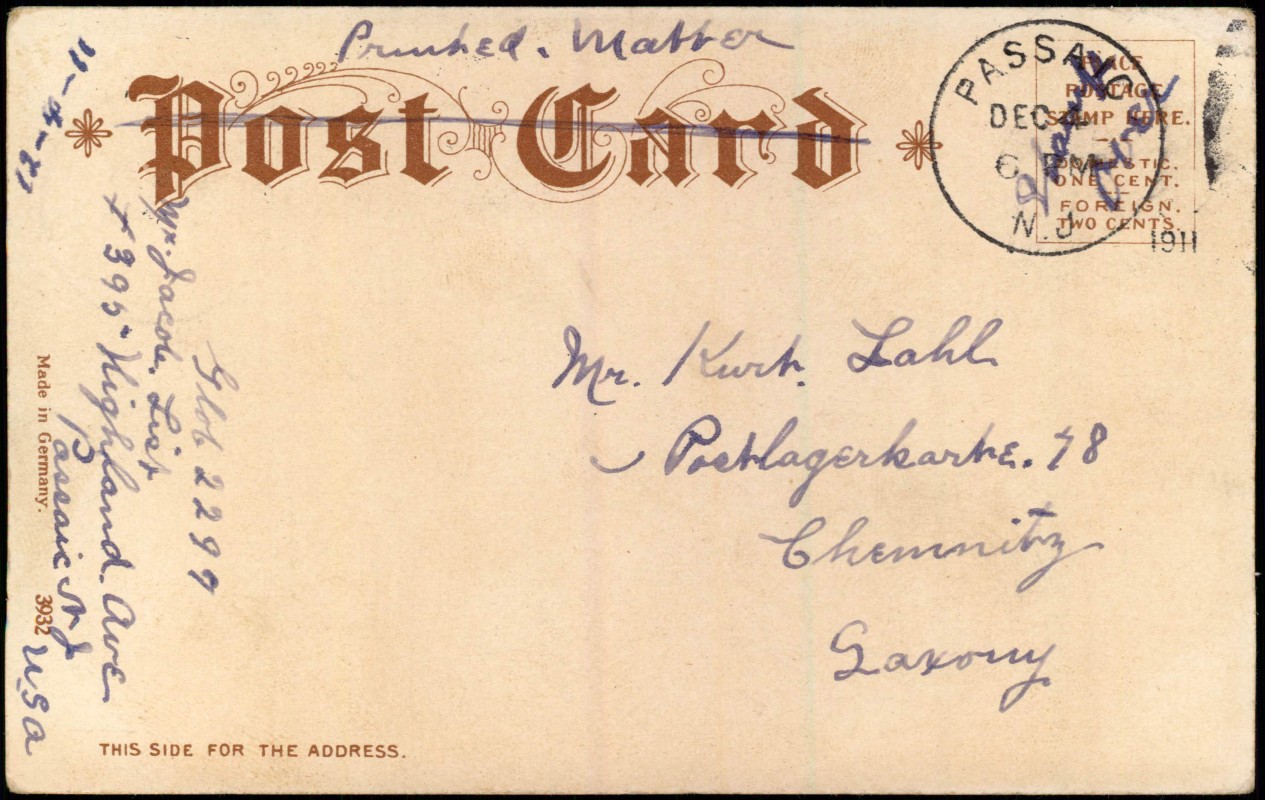 Printed. Matter
Post Card
PASSAIC
DEC
6 PM
N.J
1911
PLACE
POSTAGE
STAMP HERE.
DOMESTIC.
ONE CENT.
FOREIGN.
TWO CENTS.
Mr. Kurt. Lahl
Postlagerkarte. 78
Chemnitz
Saxony
Glob 2299
Mr. Jacob. List
+ 395 Highland. Ave
Passaic NJ
USA
Made in Germany.
3932
THIS SIDE FOR THE ADDRESS.